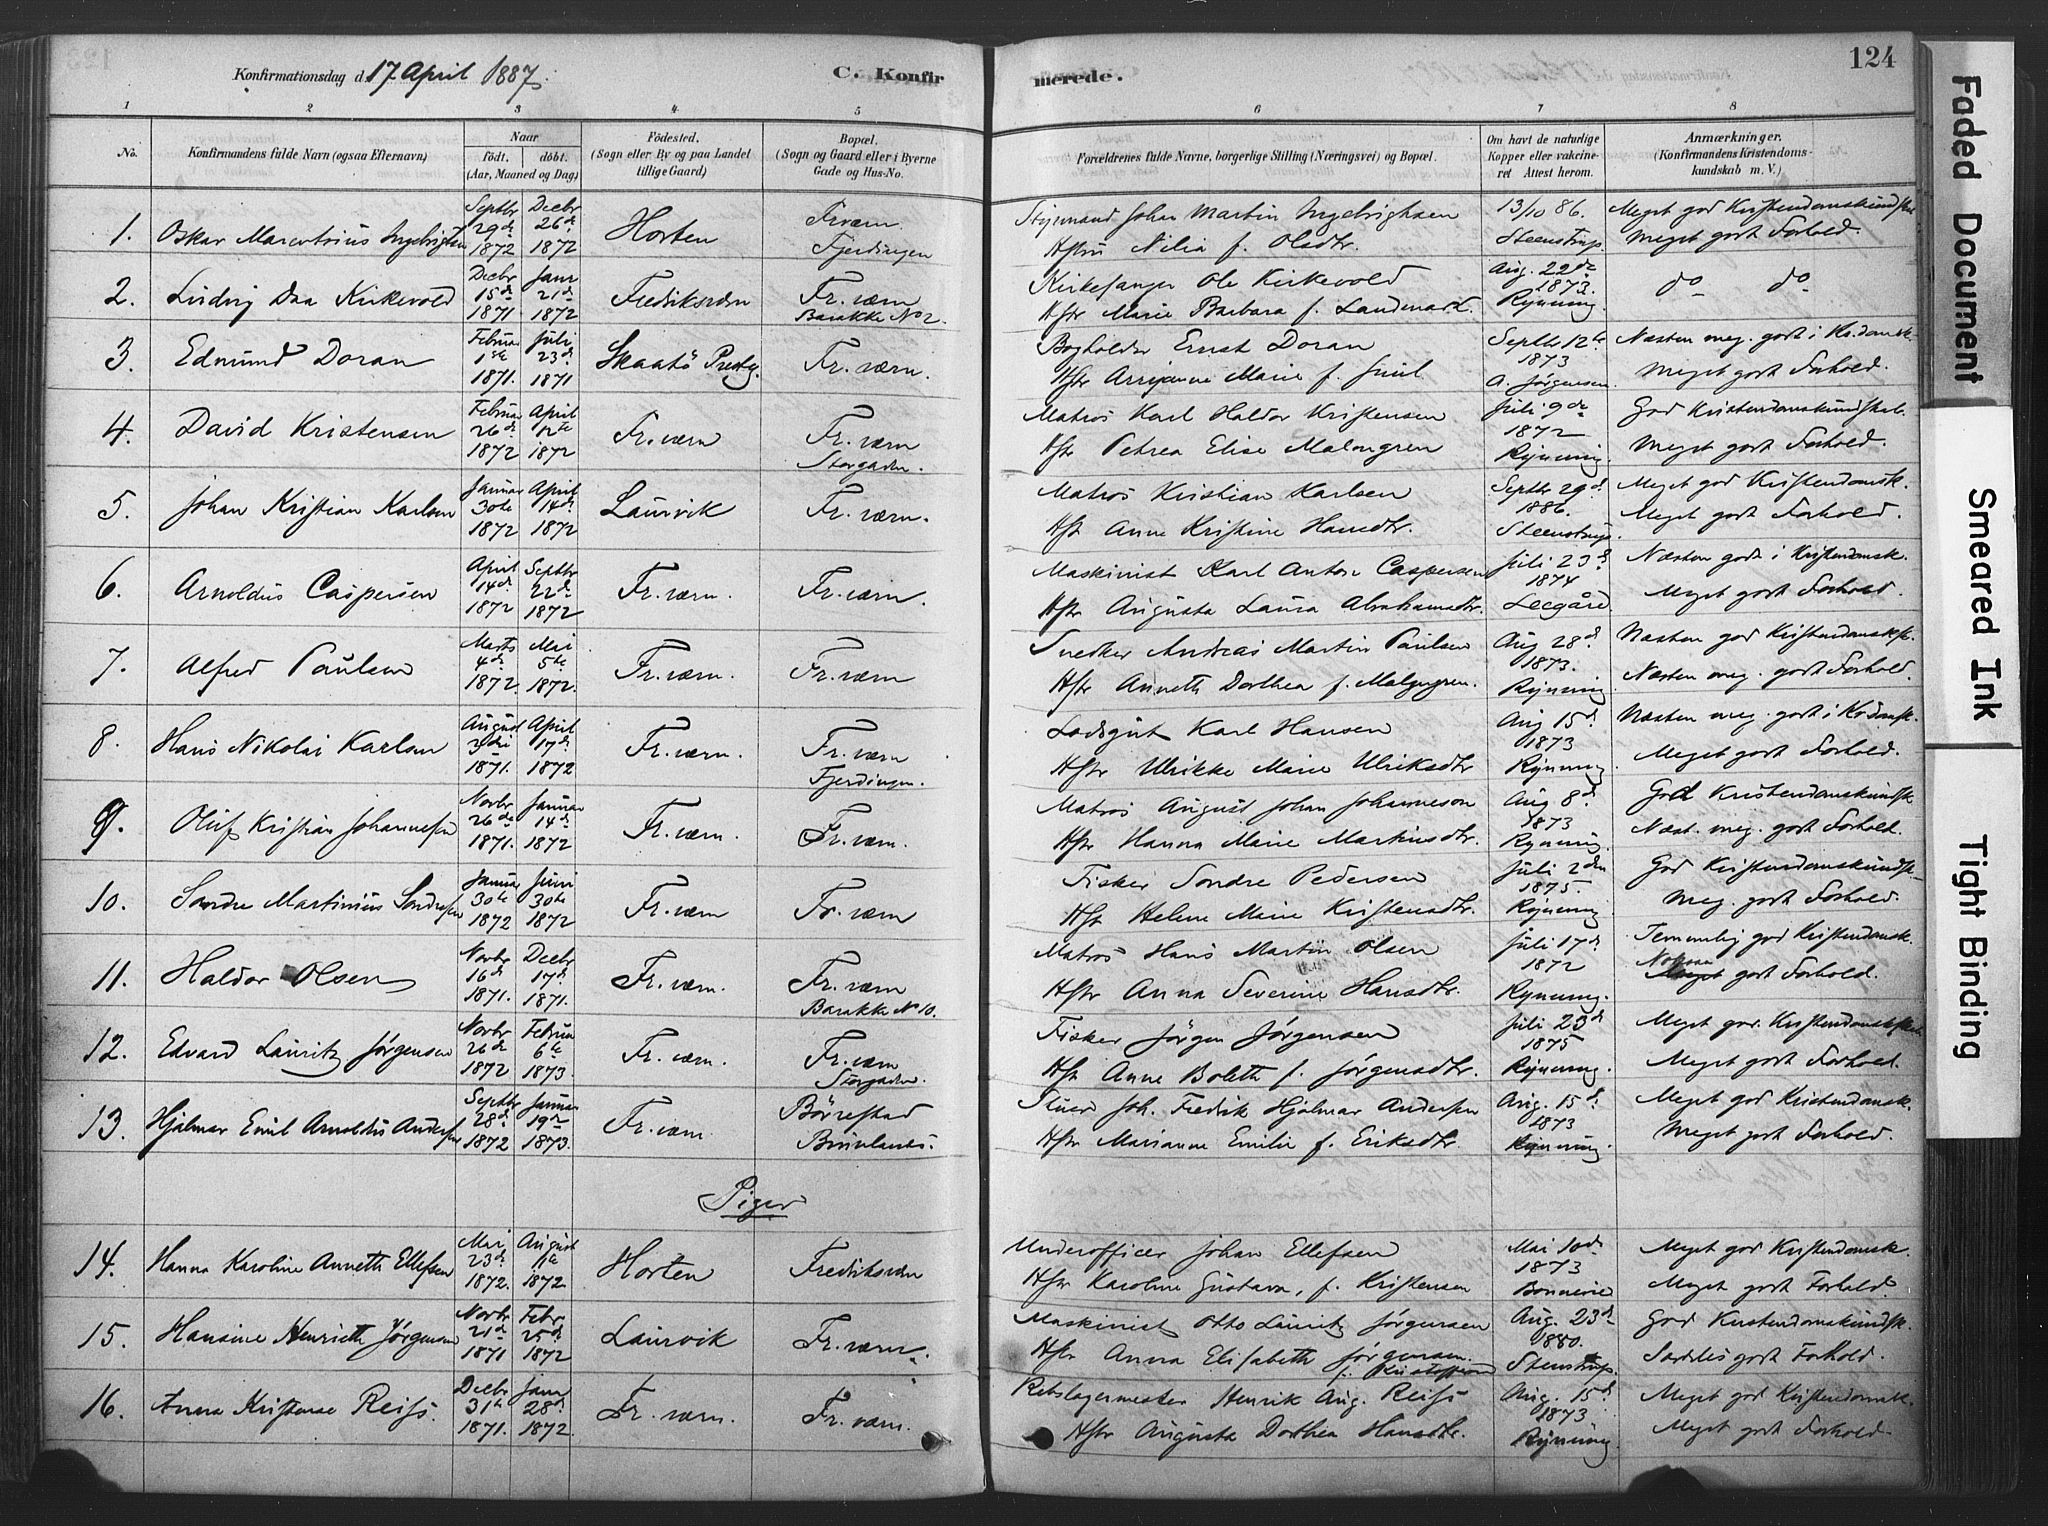 124
Konfirmationsdag d. 17. April 1887.
C. Konfirmerede.
1 2 3 4 5 6 7 8
No.
Konfirmandens fulde Navn (ogsaa Efternavn)
Naar
födt. döbt.
(Aar, Maaned og Dag)
Födested.
(Sogn eller By og paa Landet tillige Gaard)
Bopæl.
(Sogn og Gaard eller i Byerne Gade og Hus-No.
Forældrenes fulde Navne, borgerlige Stilling (Næringsvei) og Bopæl.
Om havt de naturlige Kopper eller vakcineret Attest herom.
Anmærkninger.
(Konfirmandens Kristendomskundskab m. V.)
1. Oskar Ingebrigtsen
Septbr 29de 1872 Decbr 26de 1872
Horten
Fr.værn. Fjerdingen
Styrmand Johan Martin Ingebrigtsen
Hstru Nilia f. Olsdtr.
13/10 86. Steenstrup.
Meget god Kristendomskundskab
Meget godt Forhold.
2. Ludvig Daa Kirkevold
Decbr 15de 1871 Janr 21de 1872
Fredriksværn
Fr. værn Barakke No 2.
Kirkesanger Ole Kirkevold
Hstr Marie Barbara f. Landmark.
Aug. 22de 1873. Rynning
do do
3. Edmund Doran
Februar 1ste 1871. Juli 23de 1871
Skaatö Prestg.
Fr. værn.
Bogholder Ernst Doran
Hstr Marie f. Juul
Septbr 12te 1873 A. Jørgensen.
Næsten meg. godt i Kr.domsk.
Meget godt Forhold.
4. David Kristensen
Februar 26de 1872 April 12te 1872
Fr. værn
Fr. værn Storgaden.
Matros Karl Haldor Kristensen
Hstr Petrea Elise Malmgren
Juli 9de 1872 Rynning
God Kristendomskundskab.
Meget godt Forhold
5. Johan Kristian Karlsen
Januar 30te 1872 April 14de 1872
Laurvik
Fr. værn.
Matros Kristian Karlsen
Hst. Anne Kristine Hansdtr.
Septbr 29d. 1886. Steenstrup.
Meget god Kristendomsk.
Meget godt Forhold.
6. Arnoldus Caspersen
April 14de 1872 Septbr 22de 1872
Fr. værn.
Fr. værn.
Maskinist Karl Anton Caspersen
Hstr Augusta Laura Abrahamsdtr.
Juli 23d 1874 Leegård.
Næsten godt i Kristendomsk.
Meget godt Forhold.
7. Alfred Paulsen
Marts 4de 1872. Mai 5te 1872.
Fr. værn.
Fr. værn
Snedker Andreas Martin Paulsen
Hstr Anneth Dorthea f. Malmgren.
Aug 28d 1873. Rynning
Næsten god Kristendomsk.
Næsten meg. godt Forhold.
8. Hans Nikolai Karlsen
August 3die 1871. April 17de 1872
Fr. værn.
Fr. værn Fjerdingen.
Lodsgut Karl Hansen
Hstr Ulrikke Marie Ulriksdtr
Aug 15d. 1873 Rynning.
Næsten meg. godt i Kr.domsk.
Meget godt Forhold.
9. Oluf Kristian Johannesen
Novbr 26de 1871. Januar 14de 1872
Fr. værn.
Fr. værn.
Matros August Johan Johannesen
Hstr Hanna Marie Martinsdtr.
Aug 8d. 1873 Rynning.
God Kristendomskundsk
Næst. meg. godt Forhold.
10. Sondre Martinius Sondresen
Januar 30te 1872 Juni 30te 1872
Fr. værn
Fr. værn
Fisker Sondre Pedersen
Hst Helene Marie Kristensdtr.
Juli 2den 1875. Rynning
God Kristendomskundsk.
Meg. godt Forhold.
11. Haldor Olsen
Novbr 16de 1871. Decbr 17de 1871.
Fr. værn.
Fr. værn Barakke No 10.
Matros Hans Martin Olsen
Hstr Anna Severine Hansdtr.
Juli 17d 1872 Rynning.
Temmelig god Kristendomsk.
godt Forhold.
12. Edvard Lauritz Jørgensen
Novbr 26de 1872 Februar 6te 1873.
Fr. værn.
Fr. værn Storgaden.
Fisker Jörgen Jørgensen
Hst Anne Boleth f. Jørgensdtr.
Juli 23d 1875 Rynning.
Meget god Kristendomskundskab
Meget godt Forhold.
13. Hjalmar Emil Arnoldus Andersen
Septbr 28de 1872 Januar 19de 1873.
Fr. værn
Börrestad Brunlanes.
Stuert Joh. Fredrik Hjalmar Andersen
Hstr Marianne Emilie f. Eriksdtr.
Aug. 15d. 1873 Rynning
Meget god Kristendomsk.
Meget godt Forhold.
Piger
14. Hanna Karoline Anneth Ellefsen
Mai 23de 1872. August 11te 1872
Horten
Fredriksværn
Underofficer Johan Ellefsen
Hstr Karoline Gustava, f. Kristensen
Mai 10de 1873 Bonnevie
Meget god Kristendomsk.
Meget godt Forhold.
15. Hansine Henrieth Jørgensen
Novbr 21de 1871 Febr. 25de 1872
Laurvik
Fr. værn.
Maskinist Otto Lauritz Jørgensen
Hstr Anna Elisabeth Jørgensen f. Kristoffersen
Aug. 23d 1880. Steenstrup.
God Kristendomskundsk.
Særdeles godt Forhold.
16. Anna Kristense Reiss.
Decbr 31te 1871. Janr 28de 1872.
Fr. værn.
Fr. værn.
Rebslagermester Henrik Aug. Reiss
Hstr Augusta Dorthea Hansdtr.
Aug. 15d 1873. Rynning
Meget god Kristendomsk.
Meget godt Forhold.
Faded Document
Smeared Ink
Tight Binding